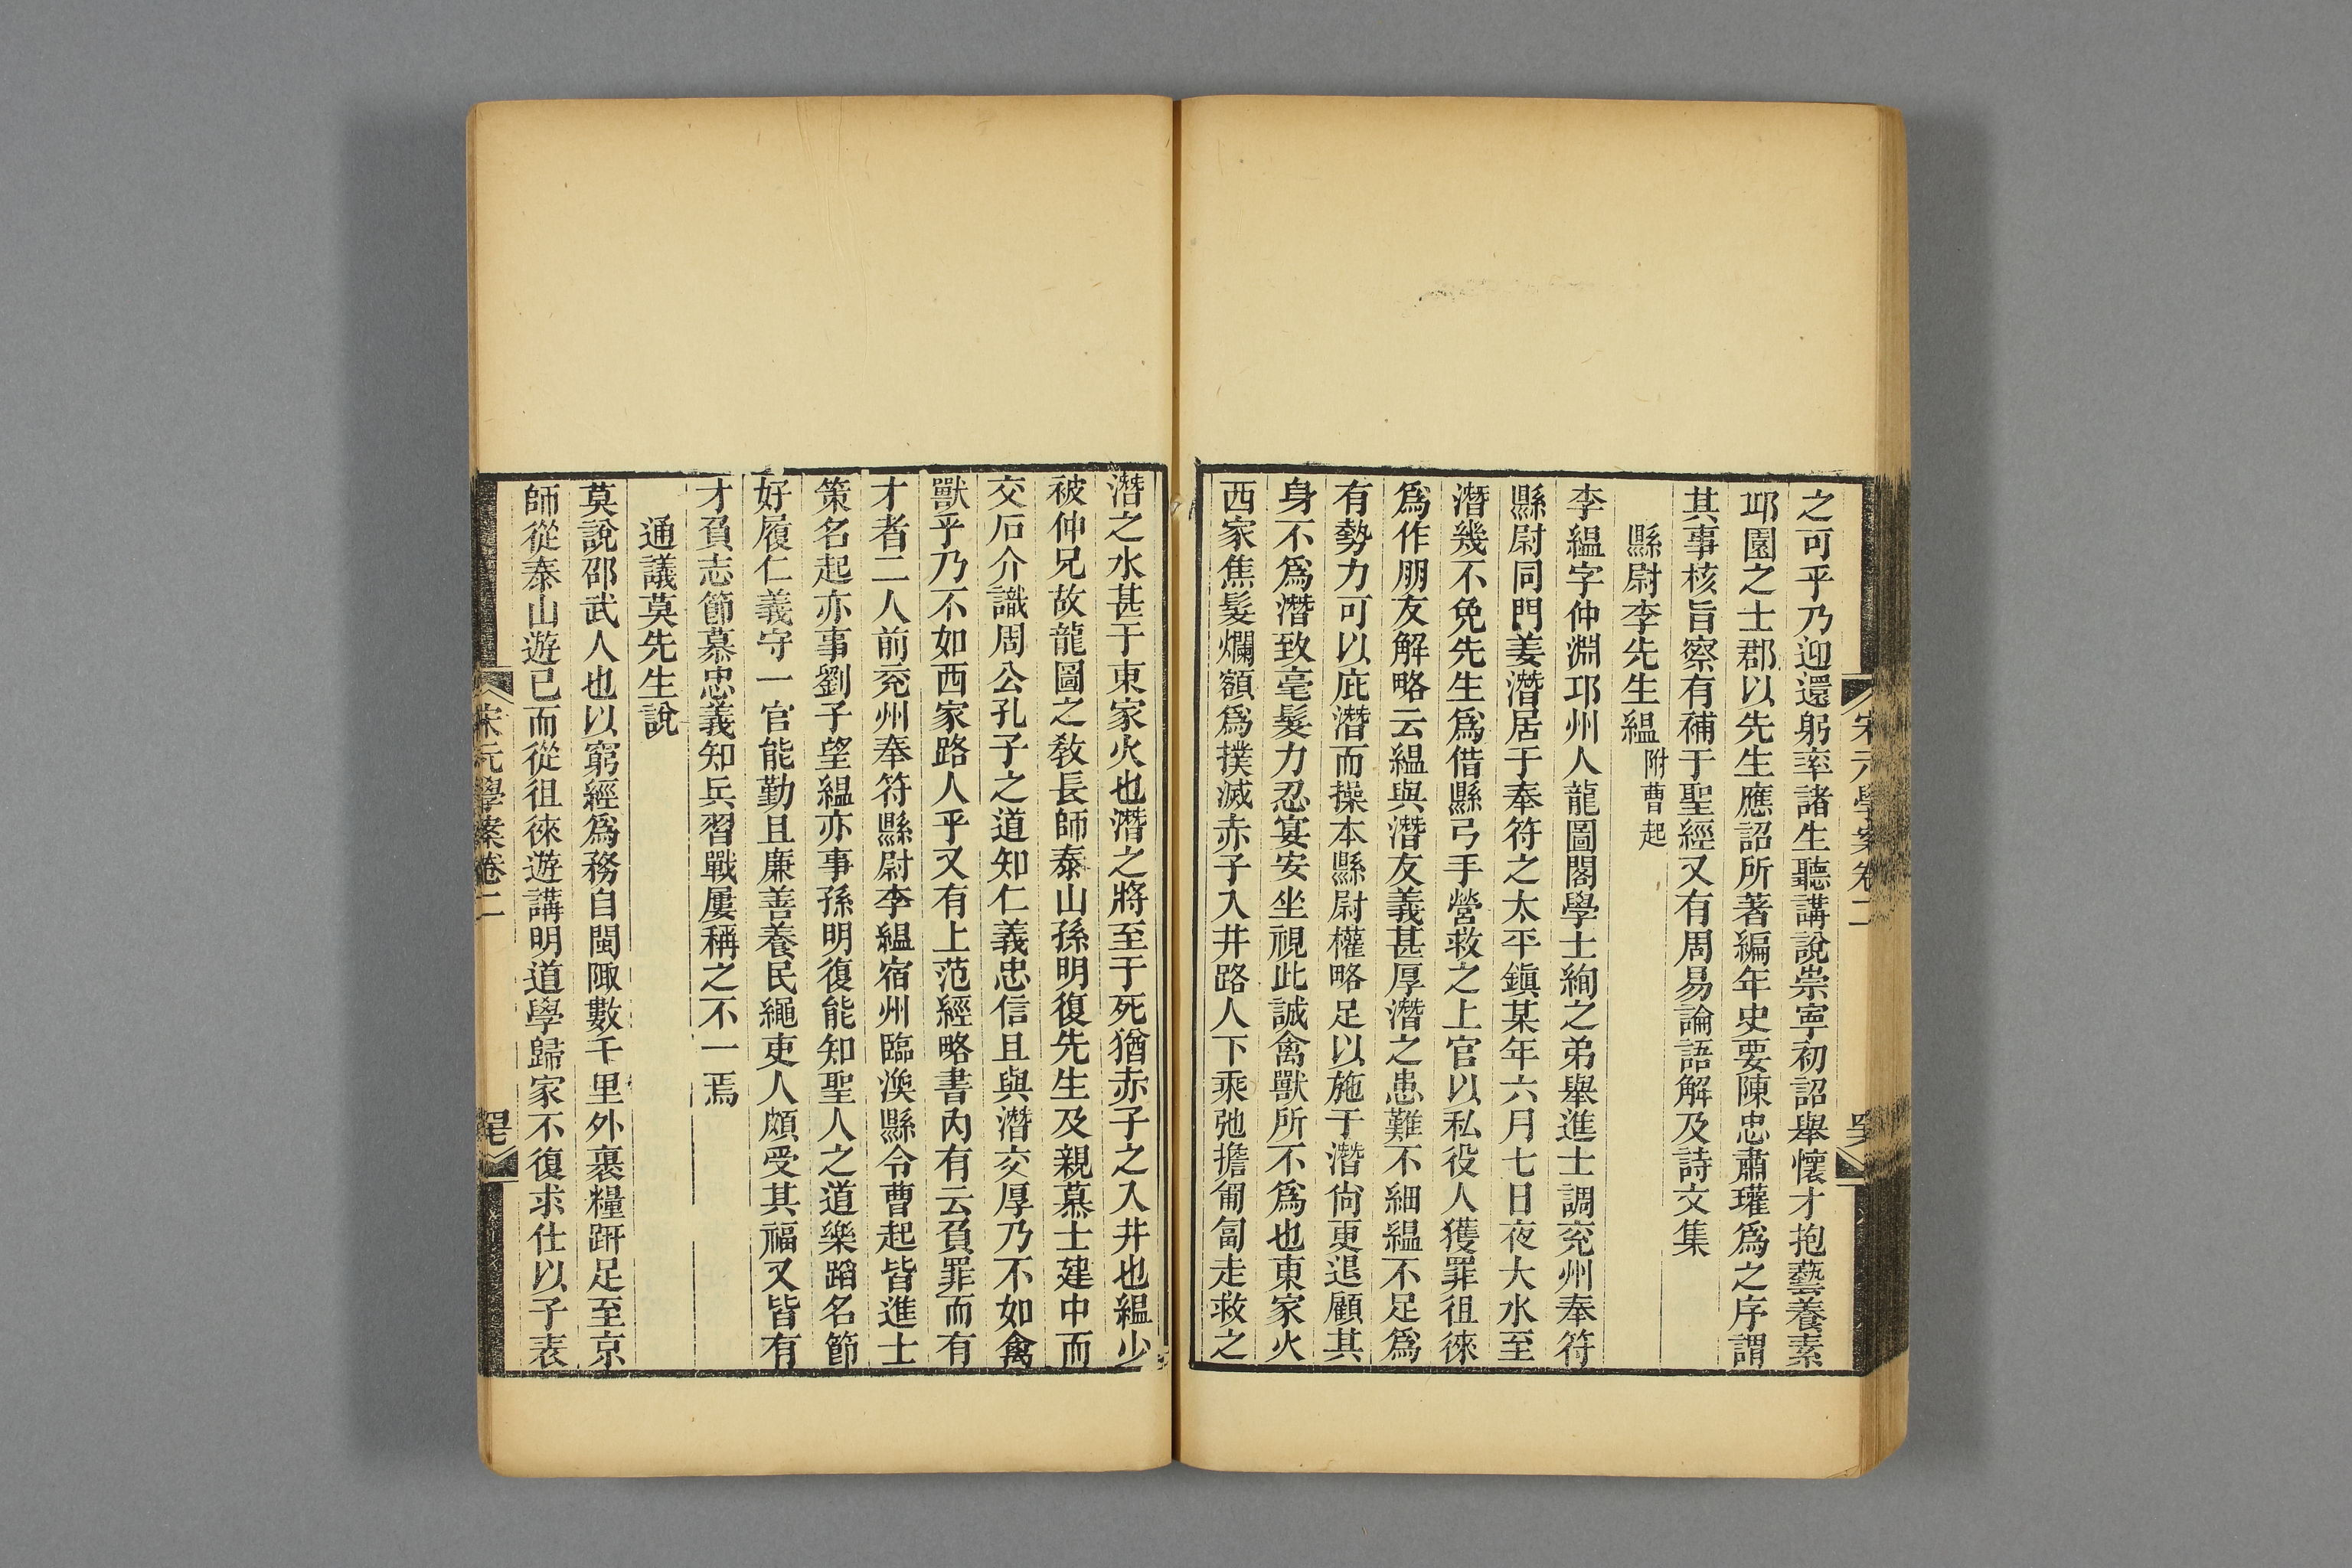 之可乎乃迎還躬率諸生聽講說崇寧初詔舉懷才抱藝養素
邱園之士郡以先生應詔所著編年史要陳忠肅瓘爲之序謂
其事核旨察有補于聖經又有周易論語解及詩文集
縣尉李先生縕附曹起
李縕字仲淵邛州人龍圖閣學士絢之弟舉進士調兖州奉符
縣尉同門姜潛居于奉符之太平鎭某年六月七日夜大水至
潛幾不免先生爲借縣弓手營救之上官以私役人獲罪徂徠
爲作朋友解略云縕與潛友義甚厚潛之患難不細縕不足爲
有勢力可以庇潛而操本縣尉權略足以施于潛尙更退顧其
身不爲潛致毫髮力忍宴安坐視此誠禽獸所不爲也東家火
西家焦髮爛額爲撲滅赤子入井路人下乘弛擔匍匐走救之
潛之水甚于東家火也潛之將至于死猶赤子之入井也縕少
被仲兄故龍圖之敎長師泰山孫明復先生及親慕士建中而
交石介識周公孔子之道知仁義忠信且與潛交厚乃不如禽
獸乎乃不如西家路人乎又有上范經略書內有云負罪而有
才者二人前兖州奉符縣尉李縕宿州臨渙縣令曹起皆進士
策名起亦事劉子望縕亦事孫明復能知聖人之道樂蹈名節
好履仁義守一官能勤且廉善養民繩吏人頗受其福又皆有
才負志節慕忠義知兵習戰屢稱之不一焉
通議莫先生說
莫說邵武人也以窮經爲務自閩陬數千里外裹糧趼足至京
師從泰山遊已而從徂徠遊講明道學歸家不復求仕以子表
宋元學案卷二